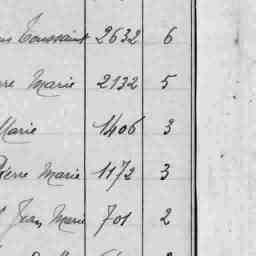 Toussaint 2632 6
Marie 2132 5
Marie 1406 3
Pierre Marie 1172 3
Jean Marie 701 2